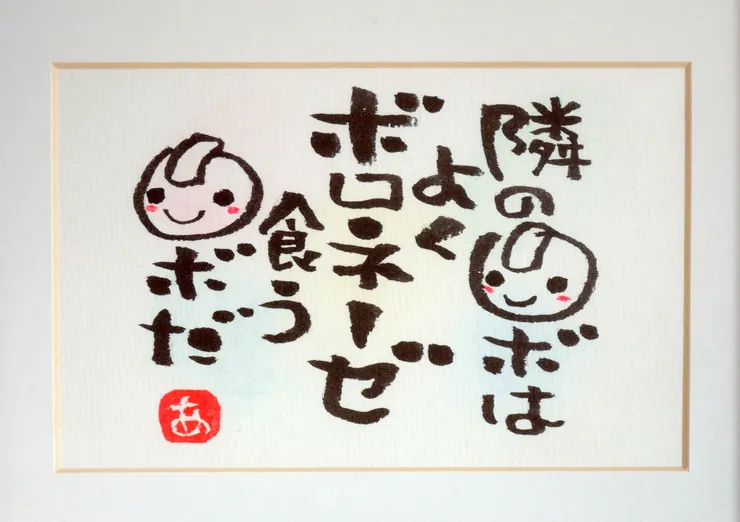 隣のボは
よく
ボロネーゼ
食う
ボだ
あ